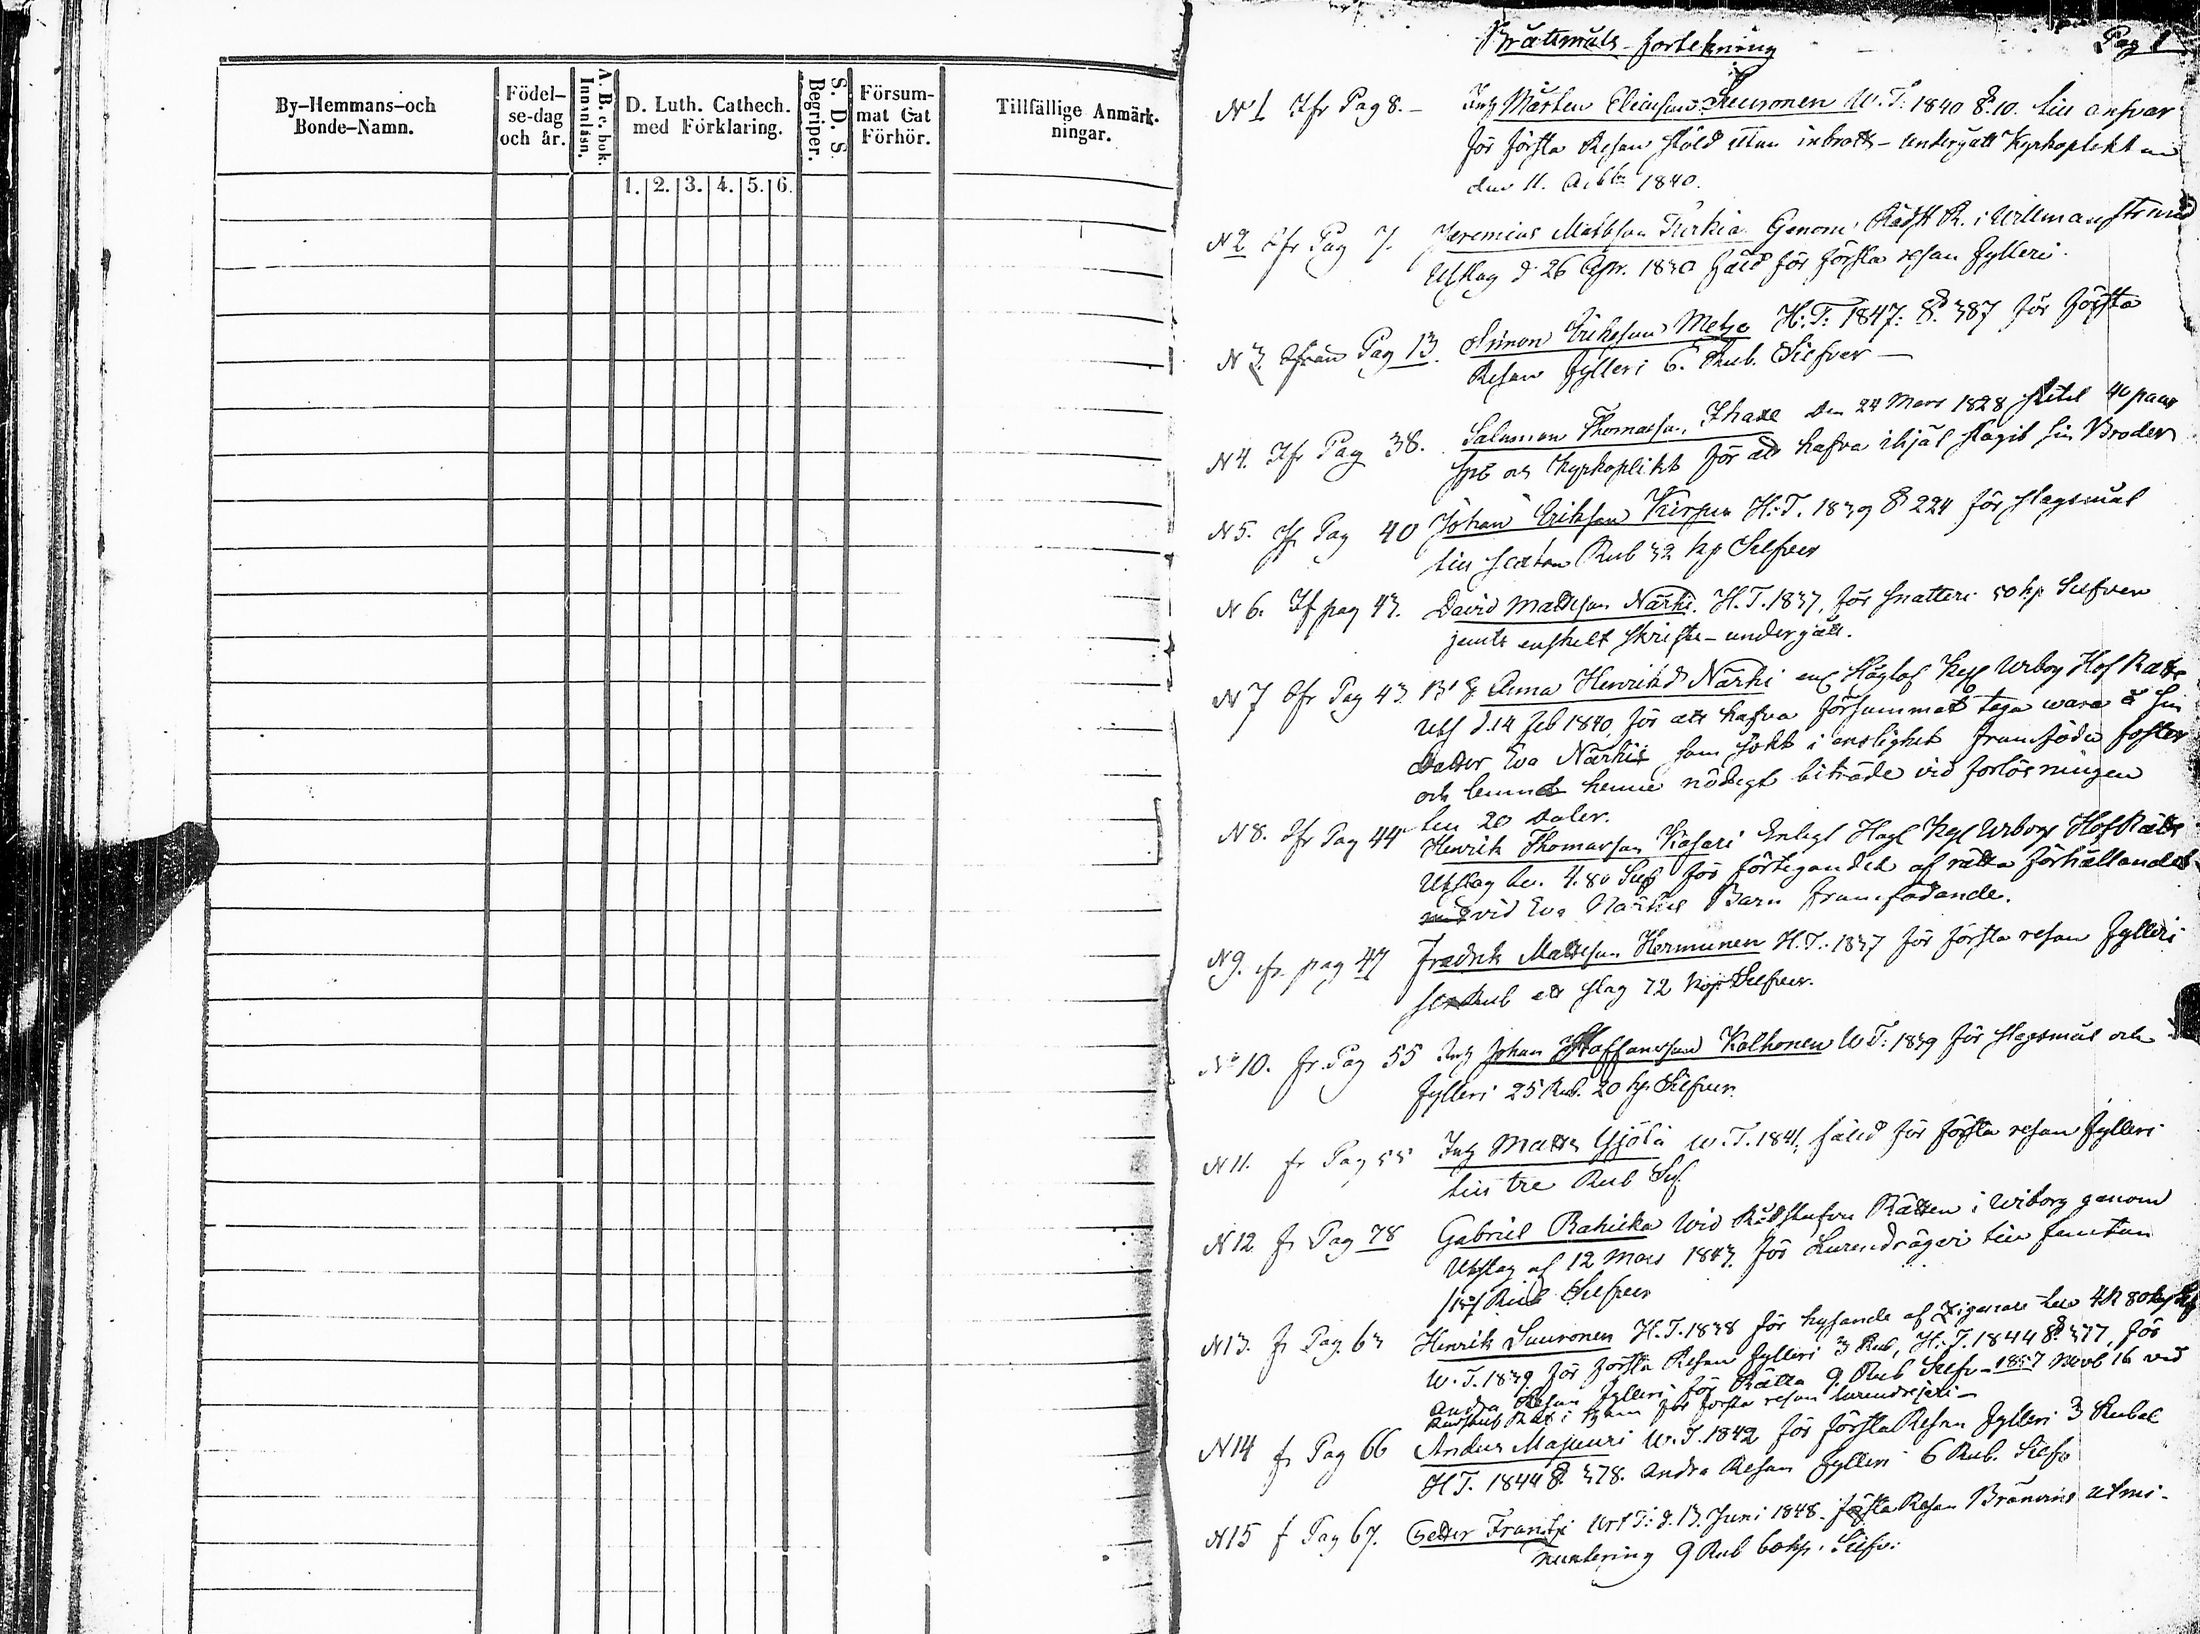 By-Hemmans-och Bonde-Namn.
Födel-se-dag och år.
A. B. c. bok. Innanläsn.
D. Luth. Cathech. med Förklaring.
1. 2. 3. 4. 5. 6.
S. D. S. Begriper.
Försum-mat Gat Förhör.
Tillfällige Anmärk-ningar.
Brottmåls-förtekning Pag 1
N 1 Ifr Pag 8. - Mårten Eliasson W. T. 1840 § 10. till ansvar
för första Resan stöld utan inbrott - undergått Kyrkoplikt
den 11. 1840.
N 2 Ifr Pag 7. Jeremias Mattsson Turkia Genom Rådst R. i Willmanstrand
Utslag d 26 Apr. 1840 fäld för första resan fylleri.
N 3. ifrån Pag 13. Simon Eriksson H: T: 1847: §. 387 för första
Resan fylleri 6. Rub. Silfver —
N 4. Ifr Pag 38. Salomon Thomasson den 24 Mars 1828 slitit 40 paar
spö och Kyrkoplikt för att hafva ihjäl slagit sin Broder
N 5. If Pag 40 Johan Eriksson H. T. 1839 § 224 för slagsmål
Rub 32 kp Silfver
N 6. If pag 43. David Mattsson Närhi. H. T. 1837, för snatteri 50 kp Silfver
jemte enskelt skrifte - undergått.
N 7 Ifr Pag 43. Anna Henriksd Närhi Wiborg Hof Rätts
Uts d. 14 Feb 1840, för att hafva försummat taga wara å sin
dotter Eva Närhi som sökt i enslighet framföda foster
och lemnat henne nödigt biträde vid forlösningen
20 daler.
N 8. Ifr Pag 44 Henrik Thomasson Kasari Enligt Wiborgs Hof Rätts
Utslag 4. 80 Silf för förtigandet af rätta förhållandet
vid Eva Närhis Barn framfödande.
N 9. ifr. pag 47 Fredrik Mattsson Hermunen H. T. 1837 för första resan fylleri
Rub ett slag 72 kop Silfver.
N 10. fr. Pag 55 Johan Staffansson Kolhonen W T: 1839 för slagsmål och
fylleri 25 Rub. 20 kp Silfver.
N 11. fr Pag 55 Matts Yjölä W. T. 1841, fälld för första resan fylleri
tre Rub Silf
N 12 fr Pag 78 Gabriel Rahikka wid Rådstufvu Rätten i Wiborg genom
Utslag af 12 Mars 1843. för Lurendrägeri femtan
/15/ Rub Silfver
N 13. fr Pag. 63 Henrik Suuronen H. T. 1838 för hysande af Zigenare 4 R 80 kop
W. T. 1839 för första Resan fylleri 3 Rub, H: T. 1844 § 377, för
andra Resan fylleri för Rätta 9 Rub Silfv - 1857 Novb 16 vid
för första resan lurendrejeri -
N 14 fr Pag 66 Anders Majuuri W. T. 1842 för första Resan fylleri 3 Rubel
H T. 1844 §. 378. andra Resan fylleri 6 Rub. Silfv
N 15 f Pag 67. Petter T: d. 13. Juni 1848. första Resan Bränvins utmi-
nutering 9 Rub 60 kp. Silfv.